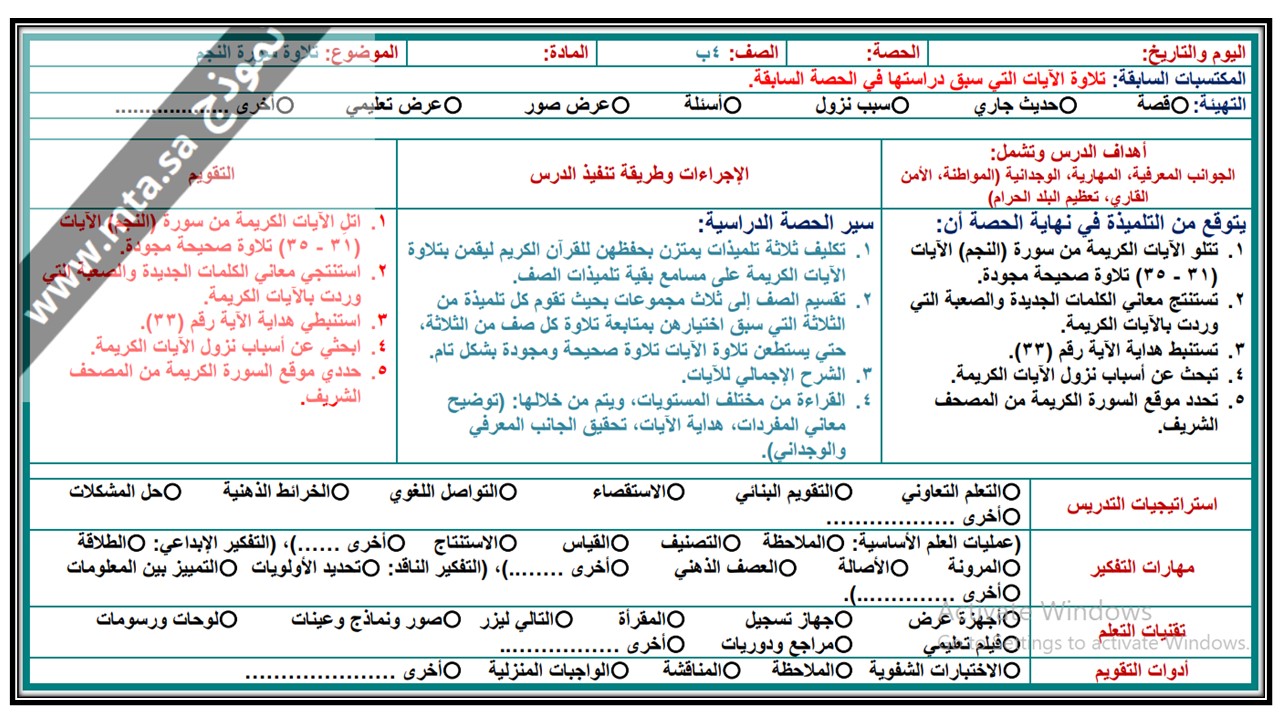 اليوم والتاريخ: الحصة: الصف: ٤ب المادة: الموضوع: تلاوة سورة النجم
المكتسبات السابقة: تلاوة الآيات التي سبق دراستها في الحصة السابقة.
التهيئة: قصة حديث جاري سبب نزول أسئلة عرض صور عرض تعليمي أخرى ..................
أهداف الدرس وتشمل:
الجوانب المعرفية، المهارية، الوجدانية (المواطنة، الأمن
القاري، تعظيم البلد الحرام)
الإجراءات وطريقة تنفيذ الدرس
التقويم
يتوقع من التلميذة في نهاية الحصة أن:
١. تتلو الآيات الكريمة من سورة (النجم) الآيات
(٣١ - ٣٥) تلاوة صحيحة مجودة.
٢. تستنتج معاني الكلمات الجديدة والصعبة التي
وردت بالآيات الكريمة.
٣. تستنبط هداية الآية رقم (٣٣).
٤. تبحث عن أسباب نزول الآيات الكريمة.
٥. تحدد موقع السورة الكريمة من المصحف
الشريف.
سير الحصة الدراسية:
١. تكليف ثلاثة تلميذات يمتزن بحفظهن للقرآن الكريم ليقمن بتلاوة
الآيات الكريمة على مسامع بقية تلميذات الصف.
٢. تقسيم الصف إلى ثلاث مجموعات بحيث تقوم كل تلميذة من
الثلاثة التي سبق اختيارهن بمتابعة تلاوة كل صف من الثلاثة،
حتي يستطعن تلاوة الآيات تلاوة صحيحة ومجودة بشكل تام.
٣. الشرح الإجمالي للآيات.
٤. القراءة من مختلف المستويات، ويتم من خلالها: (توضيح
معاني المفردات، هداية الآيات، تحقيق الجانب المعرفي
والوجداني).
١. اتل الآيات الكريمة من سورة (النجم) الآيات
(٣١ - ٣٥) تلاوة صحيحة مجودة.
٢. استنتجي معاني الكلمات الجديدة والصعبة التي
وردت بالآيات الكريمة.
٣. استنبطي هداية الآية رقم (٣٣).
٤. ابحثي عن أسباب نزول الآيات الكريمة.
٥. حددي موقع السورة الكريمة من المصحف
الشريف.
استراتيجيات التدريس
التعلم التعاوني التقويم البنائي الاستقصاء التواصل اللغوي الخرائط الذهنية حل المشكلات
أخرى ...................
مهارات التفكير
(عمليات العلم الأساسية: الملاحظة التصنيف القياس الاستنتاج أخرى ......)، (التفكير الإبداعي: الطلاقة
المرونة الأصالة العصف الذهني أخرى ........)، (التفكير الناقد: تحديد الأولويات التمييز بين المعلومات
أخرى ...............).
تقنيات التعلم
أجهزة عرض جهاز تسجيل المقرأة التالي ليزر صور ونماذج وعينات لوحات ورسومات
فيلم تعليمي مراجع ودوريات أخرى ..................
أدوات التقويم
الاختبارات الشفوية الملاحظة المناقشة الواجبات المنزلية أخرى ......................
نموذج www.mta.sa
Activate Windows
Go to Settings to activate Windows.